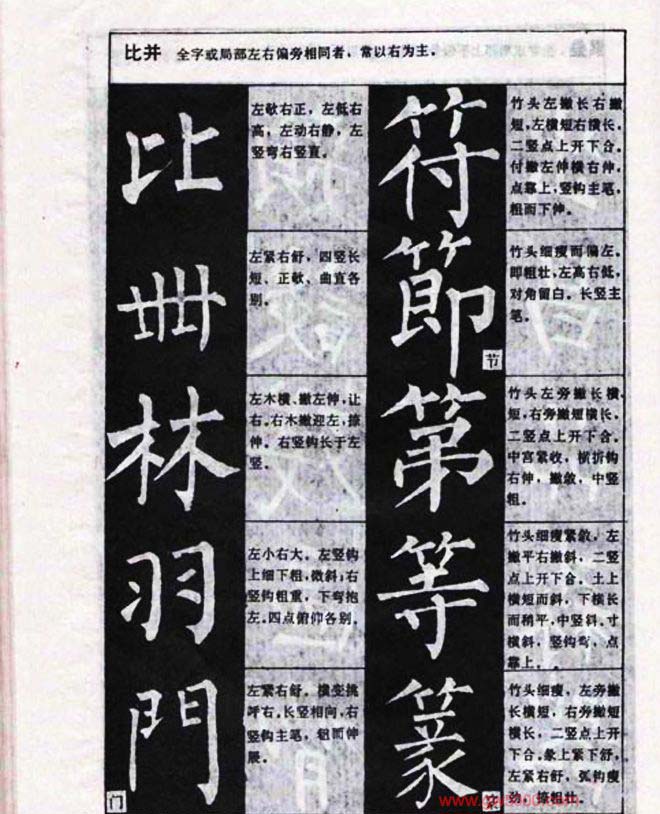 比并 全字或局部左右偏旁相同者，常以右为主．
比
左欹右正，左低右
高，左动右静，左
竖弯右竖直．
卌
左紧右舒，四竖长
短、正欹、曲直各
别．
林
左木横、撇左伸，让
右．右木撇迎左，捺
伸．右竖钩长于左
竖．
羽
左小右大．左竖钩
上细下粗，微斜；右
竖钩粗重，下弯抱
左．四点俯仰各别．
門
门
左紧右舒．横变挑
呼右．长竖相向，右
竖钩主笔，粗而伸
展．
符
竹头左撇长右撇
短，左横短右横长，
二竖点上开下合．
付撇左伸横右伸，
点靠上，竖钩主笔，
粗而下伸．
節
节
竹头细瘦而偏左．
即粗壮，左高右低，
对角留白．长竖主
笔．
第
竹头左旁撇长横
短，右旁撇短横长，
二竖点上开下合．
中宫紧收，横折钩
右伸，撇敛，中竖
粗．
等
竹头细瘦紧敛，左
撇平右撇斜，二竖
点上开下合．土上
横短而斜，下横长
而稍平，中竖斜．寸
横斜，竖钩弯，点
靠上．
篆
竹头细瘦，左旁撇
长横短，右旁撇短
横长，二竖点上开
下合．彖上紧下舒，
左紧右舒，弧钩瘦
劲，捺粗壮．